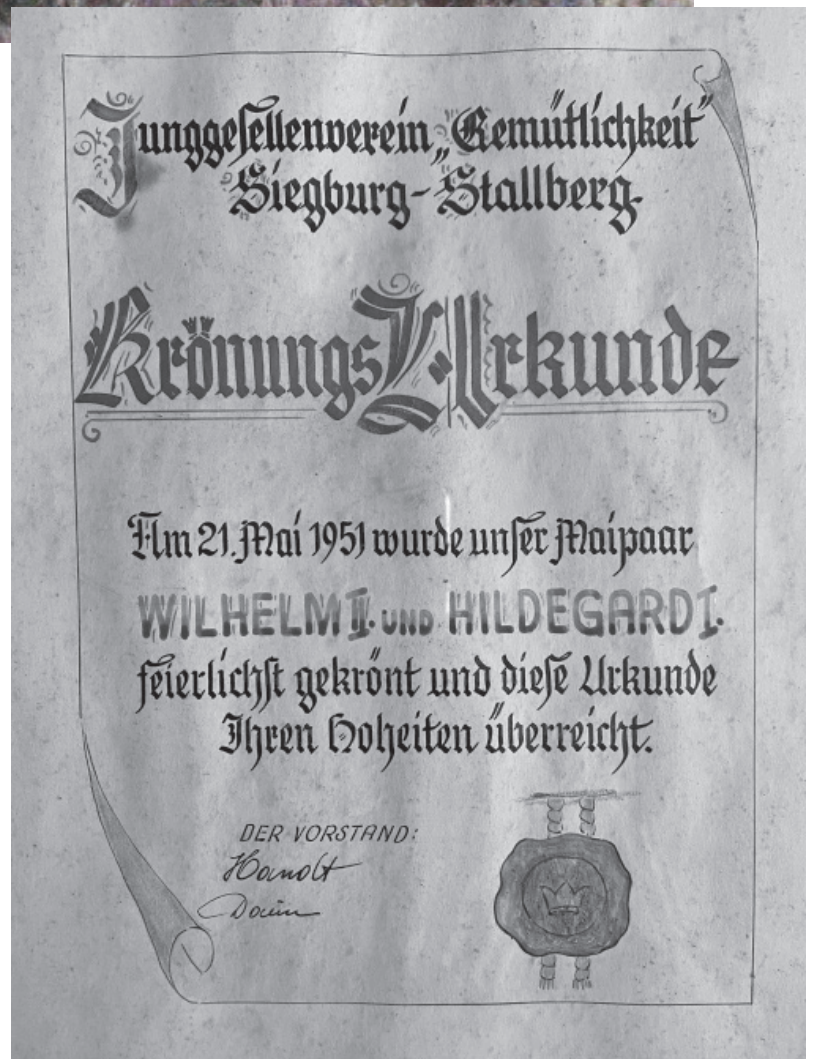 Junggesellenverein „Gemütlichkeit"
Siegburg-Stallberg.
Krönungs-Urkunde
Am 21. Mai 1951 wurde unser Maipaar
WILHELM II. UND HILDEGARD I.
feierlichst gekrönt und diese Urkunde
Ihren Hoheiten überreicht.
DER VORSTAND: